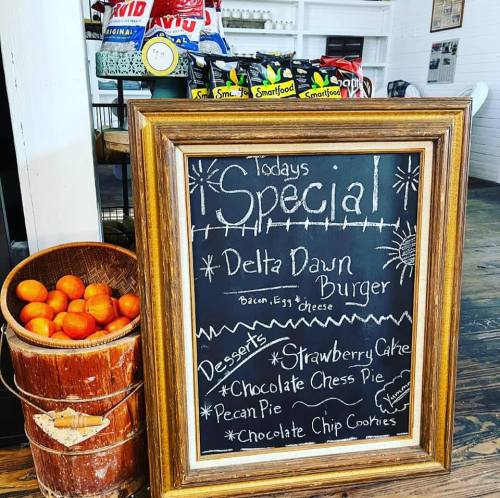 DAVID
DAVID
ORIGINAL
Smartfood
Smartfood
Smartfood
Smartfood
Todays
Special
* Delta Dawn
Burger
Bacon, Egg & cheese
Desserts
* Strawberry Cake
* Chocolate Chess Pie
* Pecan Pie
Yumm
* Chocolate Chip Cookies